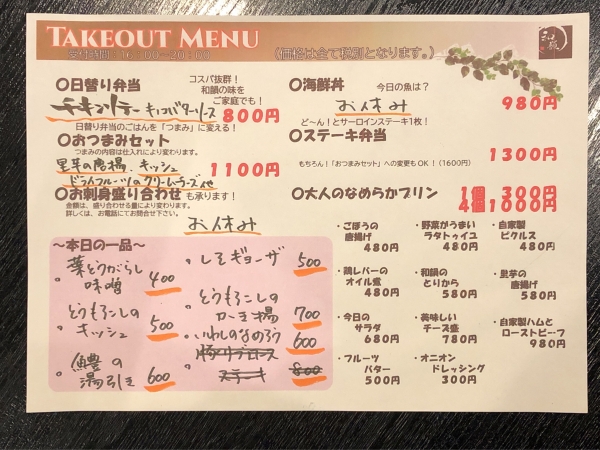 TAKEOUT MENU
(価格は全て税別となります。)
〇日替り弁当
コスパ抜群！
和韻の味を
ご家庭でも！
チキンソテー キノコバターソース 800円
日替り弁当のごはんを「つまみ」に変える！
〇おつまみセット
つまみの内容は仕入れにより変わります。
里芋の唐揚、キッシュ 1100円
ドライフルーツのクリームチーズ 他
〇お刺身盛り合わせ も承ります！
金額は、盛り合わせる量により変わります。
詳しくは、お電話にてお問合せ下さい。
お休み
〇海鮮丼 今日の魚は？
お休み 980円
ど～ん！とサーロインステーキ1枚！
〇ステーキ弁当
1300円
もちろん！「おつまみセット」への変更もOK！(1600円)
〇大人のなめらかプリン 1個 300円
4個1000円
～本日の一品～
・葉とうがらし
味噌 400
・とうもろこしの
キッシュ 500
・鱧の
湯引き 600
・しそギョーザ 500
・とうもろこしの
かき揚 700
・いわしのなめろう 600
ステーキ 800
・ごぼうの
唐揚げ
480円
・野菜がうまい
ラタトゥイユ
480円
・自家製
ピクルス
480円
・鶏レバーの
オイル煮
480円
・和韻の
とりから
580円
・里芋の
唐揚げ
580円
・今日の
サラダ
680円
・美味しい
チーズ盛
780円
・自家製ハムと
ローストビーフ
980円
・フルーツ
バター
500円
・オニオン
ドレッシング
300円